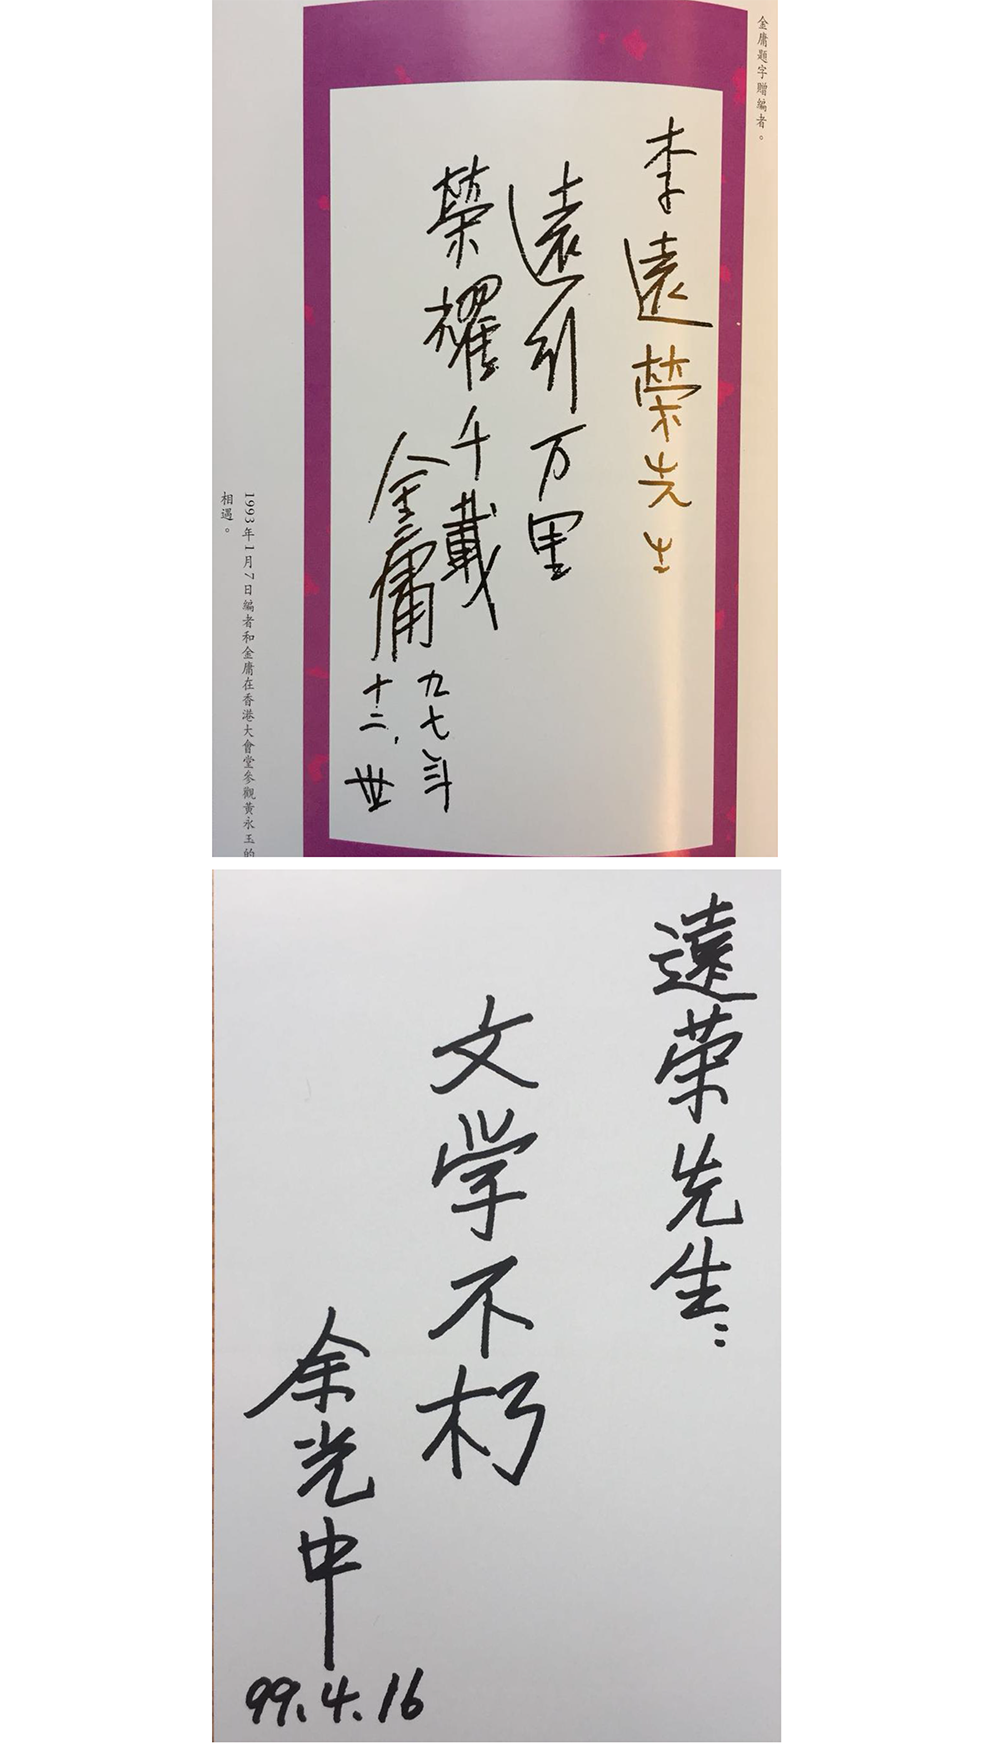 金庸題字贈編者。
李遠榮先生
遠引万里
榮耀千載
金庸
九七年
十二、卅
1993年1月7日編者和金庸在香港大會堂參觀黃永玉的
相遇。
遠荣先生：
文学不朽
余光中
99.4.16